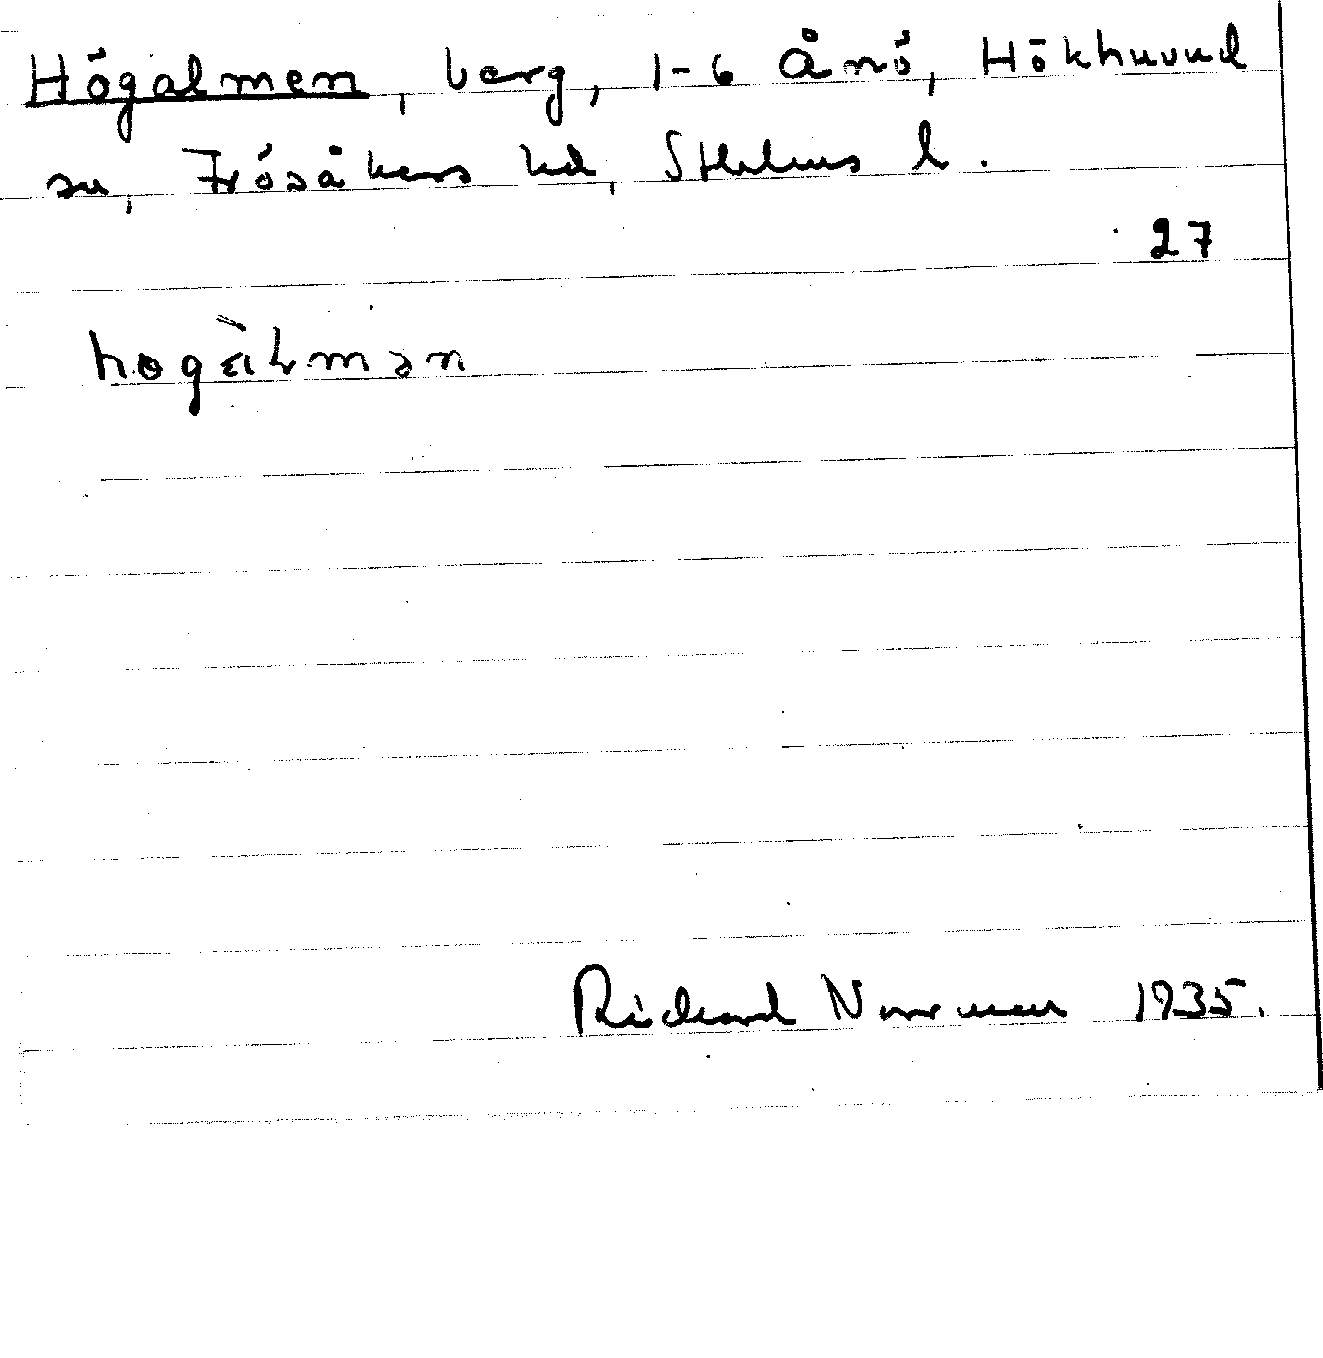 Högalmen, berg, 1-6 Ånö, Hökhuvud
sn, Frösåkers hd, Sthlms l.
27
Richard Norrman 1935.